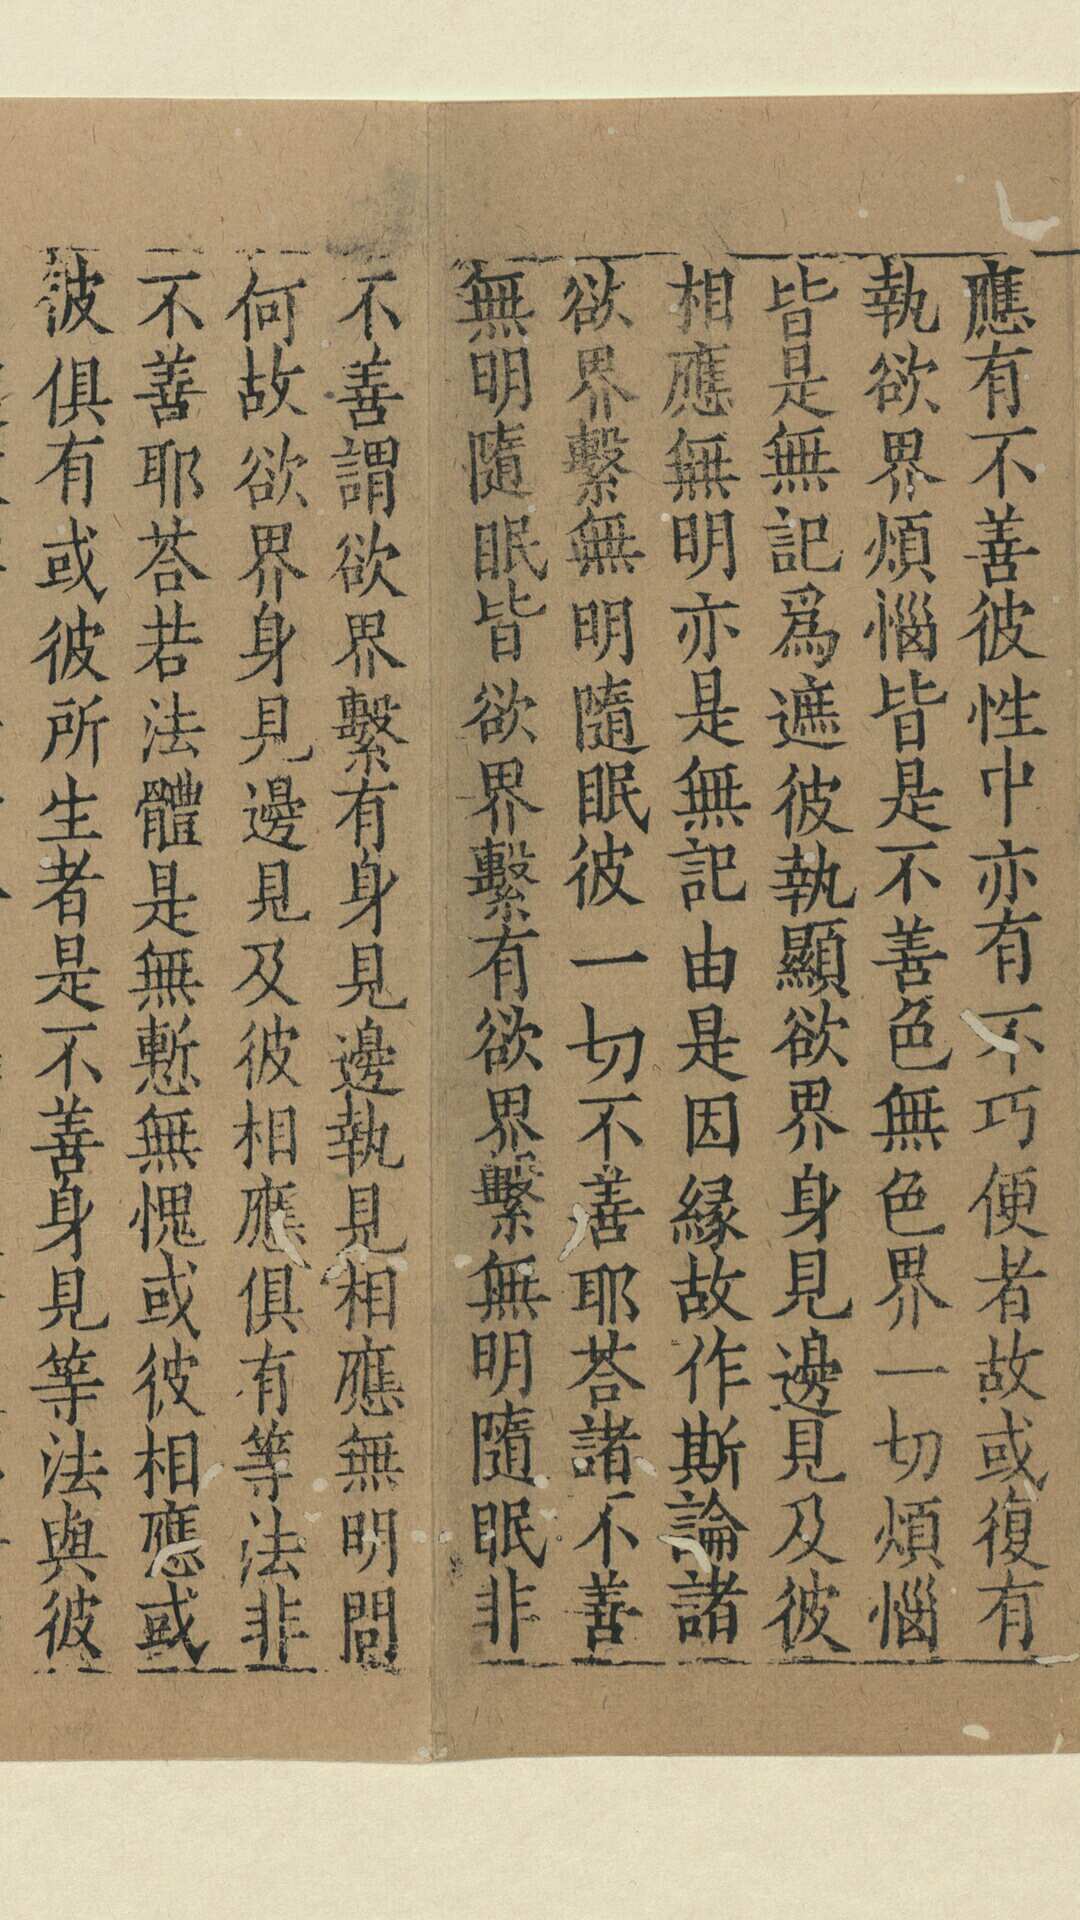 應有不善彼性中亦有不巧便者故或復有
執欲界煩惱皆是不善色無色界一切煩惱
皆是無記爲遮彼執顯欲界身見邊見及彼
相應無明亦是無記由是因緣故作斯論諸
欲界繫無明隨眠彼一切不善耶荅諸不善
無明隨眠皆欲界繫有欲界繫無明隨眠非
不善謂欲界繫有身見邊執見相應無明問
何故欲界身見邊見及彼相應俱有等法非
不善耶荅若法體是無慙無愧或彼相應或
彼俱有或彼所生者是不善身見等法與彼